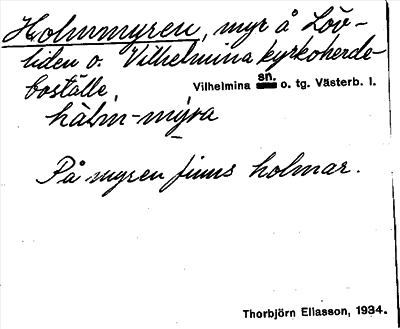 Holmmyren, myr å Löv-
liden o. Vilhelmina kyrkoherde-
boställe, Vilhelmina sn. o. tg. Västerb. l.
hàlm-mýra
På myren finns holmar.
Thorbjörn Eliasson, 1934.